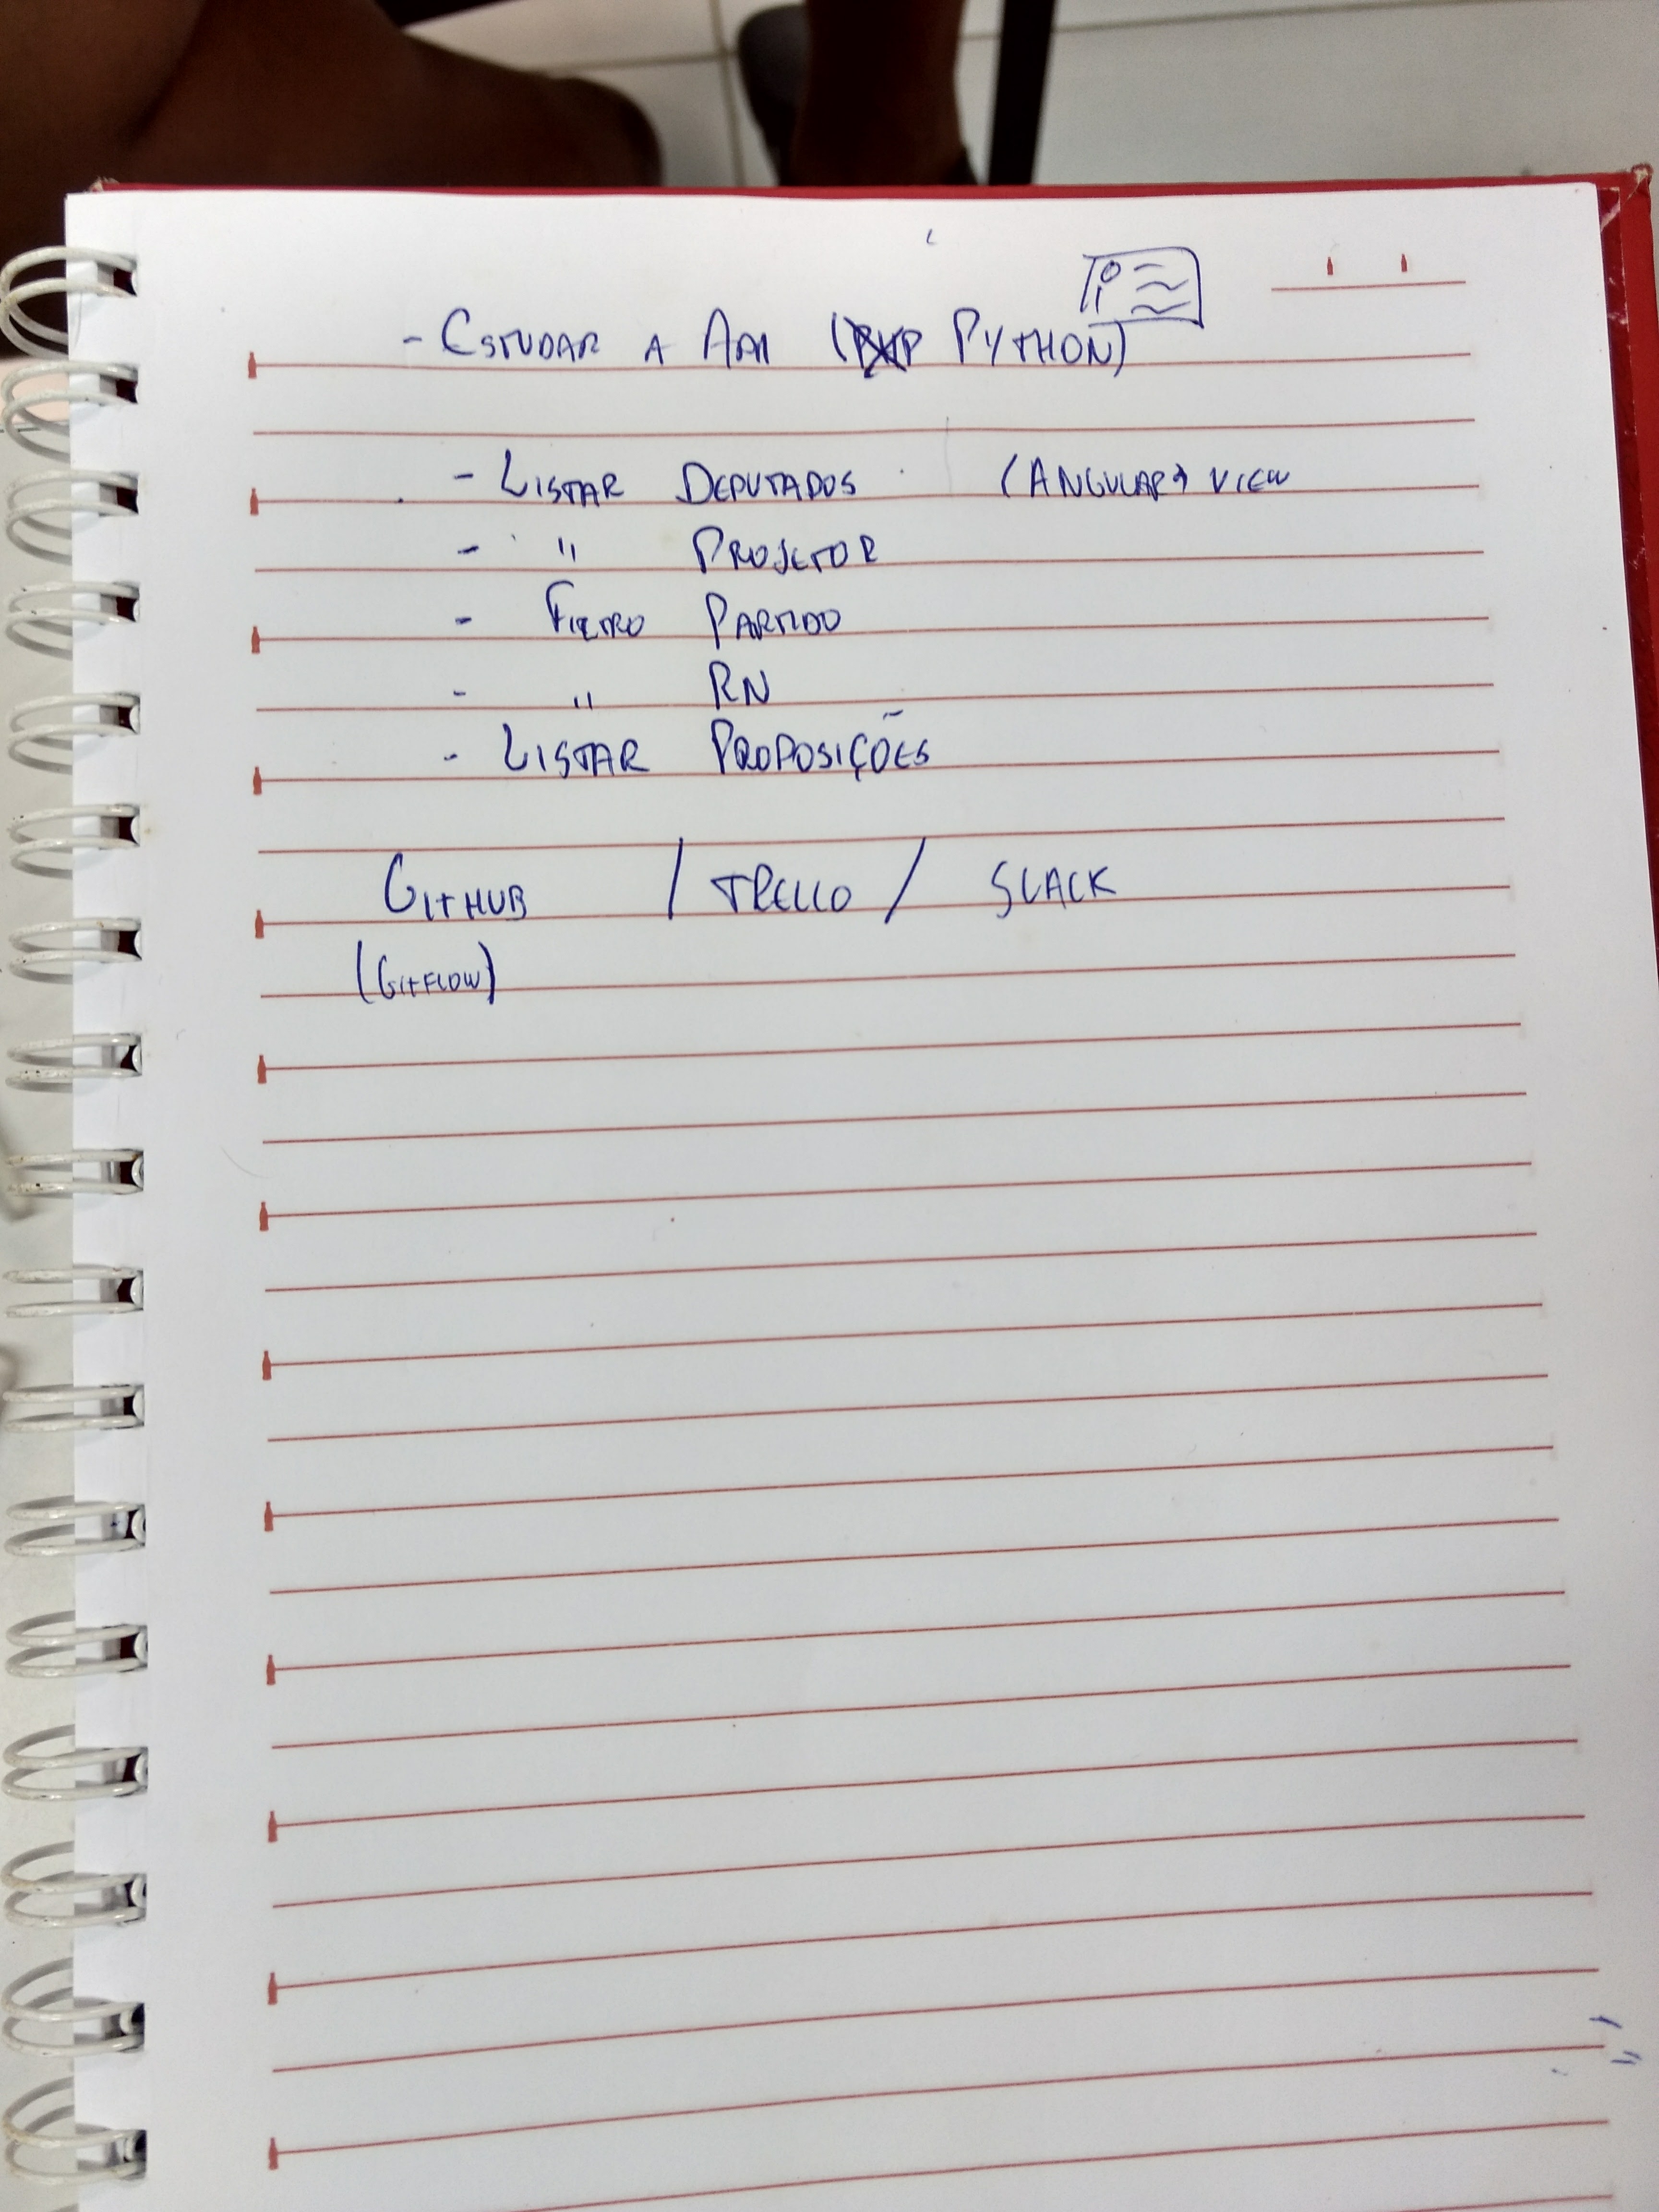 - ESTUDAR A API (PYTHON)
- LISTAR DEPUTADOS (ANGULAR) VIEW
- " PROJETOR
- FILTRO PARTIDO
- " RN
- LISTAR PROPOSIÇÕES
GITHUB / TRELLO / SLACK
(GITFLOW)